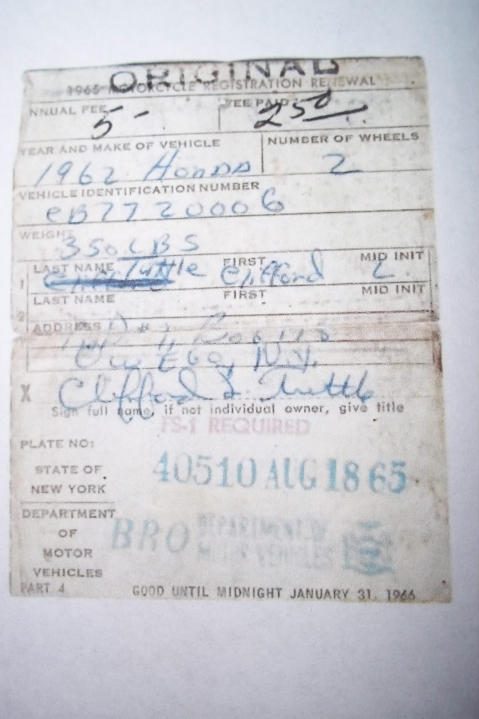 ORIGINAL
1965 MOTORCYCLE REGISTRATION RENEWAL
NNUAL FEE 5- FEE PAID 2 50
YEAR AND MAKE OF VEHICLE NUMBER OF WHEELS
1962 HONDA 2
VEHICLE IDENTIFICATION NUMBER
CB77 20006
WEIGHT
350 LBS
LAST NAME FIRST MID INIT
1 Tuttle Clifford L.
LAST NAME FIRST MID INIT
2
ADDRESS
Owego, N.Y.
X Clifford L. Tuttle
Sign full name, if not individual owner, give title
FS-1 REQUIRED
PLATE NO:
STATE OF 40510 AUG 18 65
NEW YORK
DEPARTMENT BRO DEPARTMENT OF
OF MOTOR VEHICLES
MOTOR
VEHICLES
PART 4 GOOD UNTIL MIDNIGHT JANUARY 31, 1966